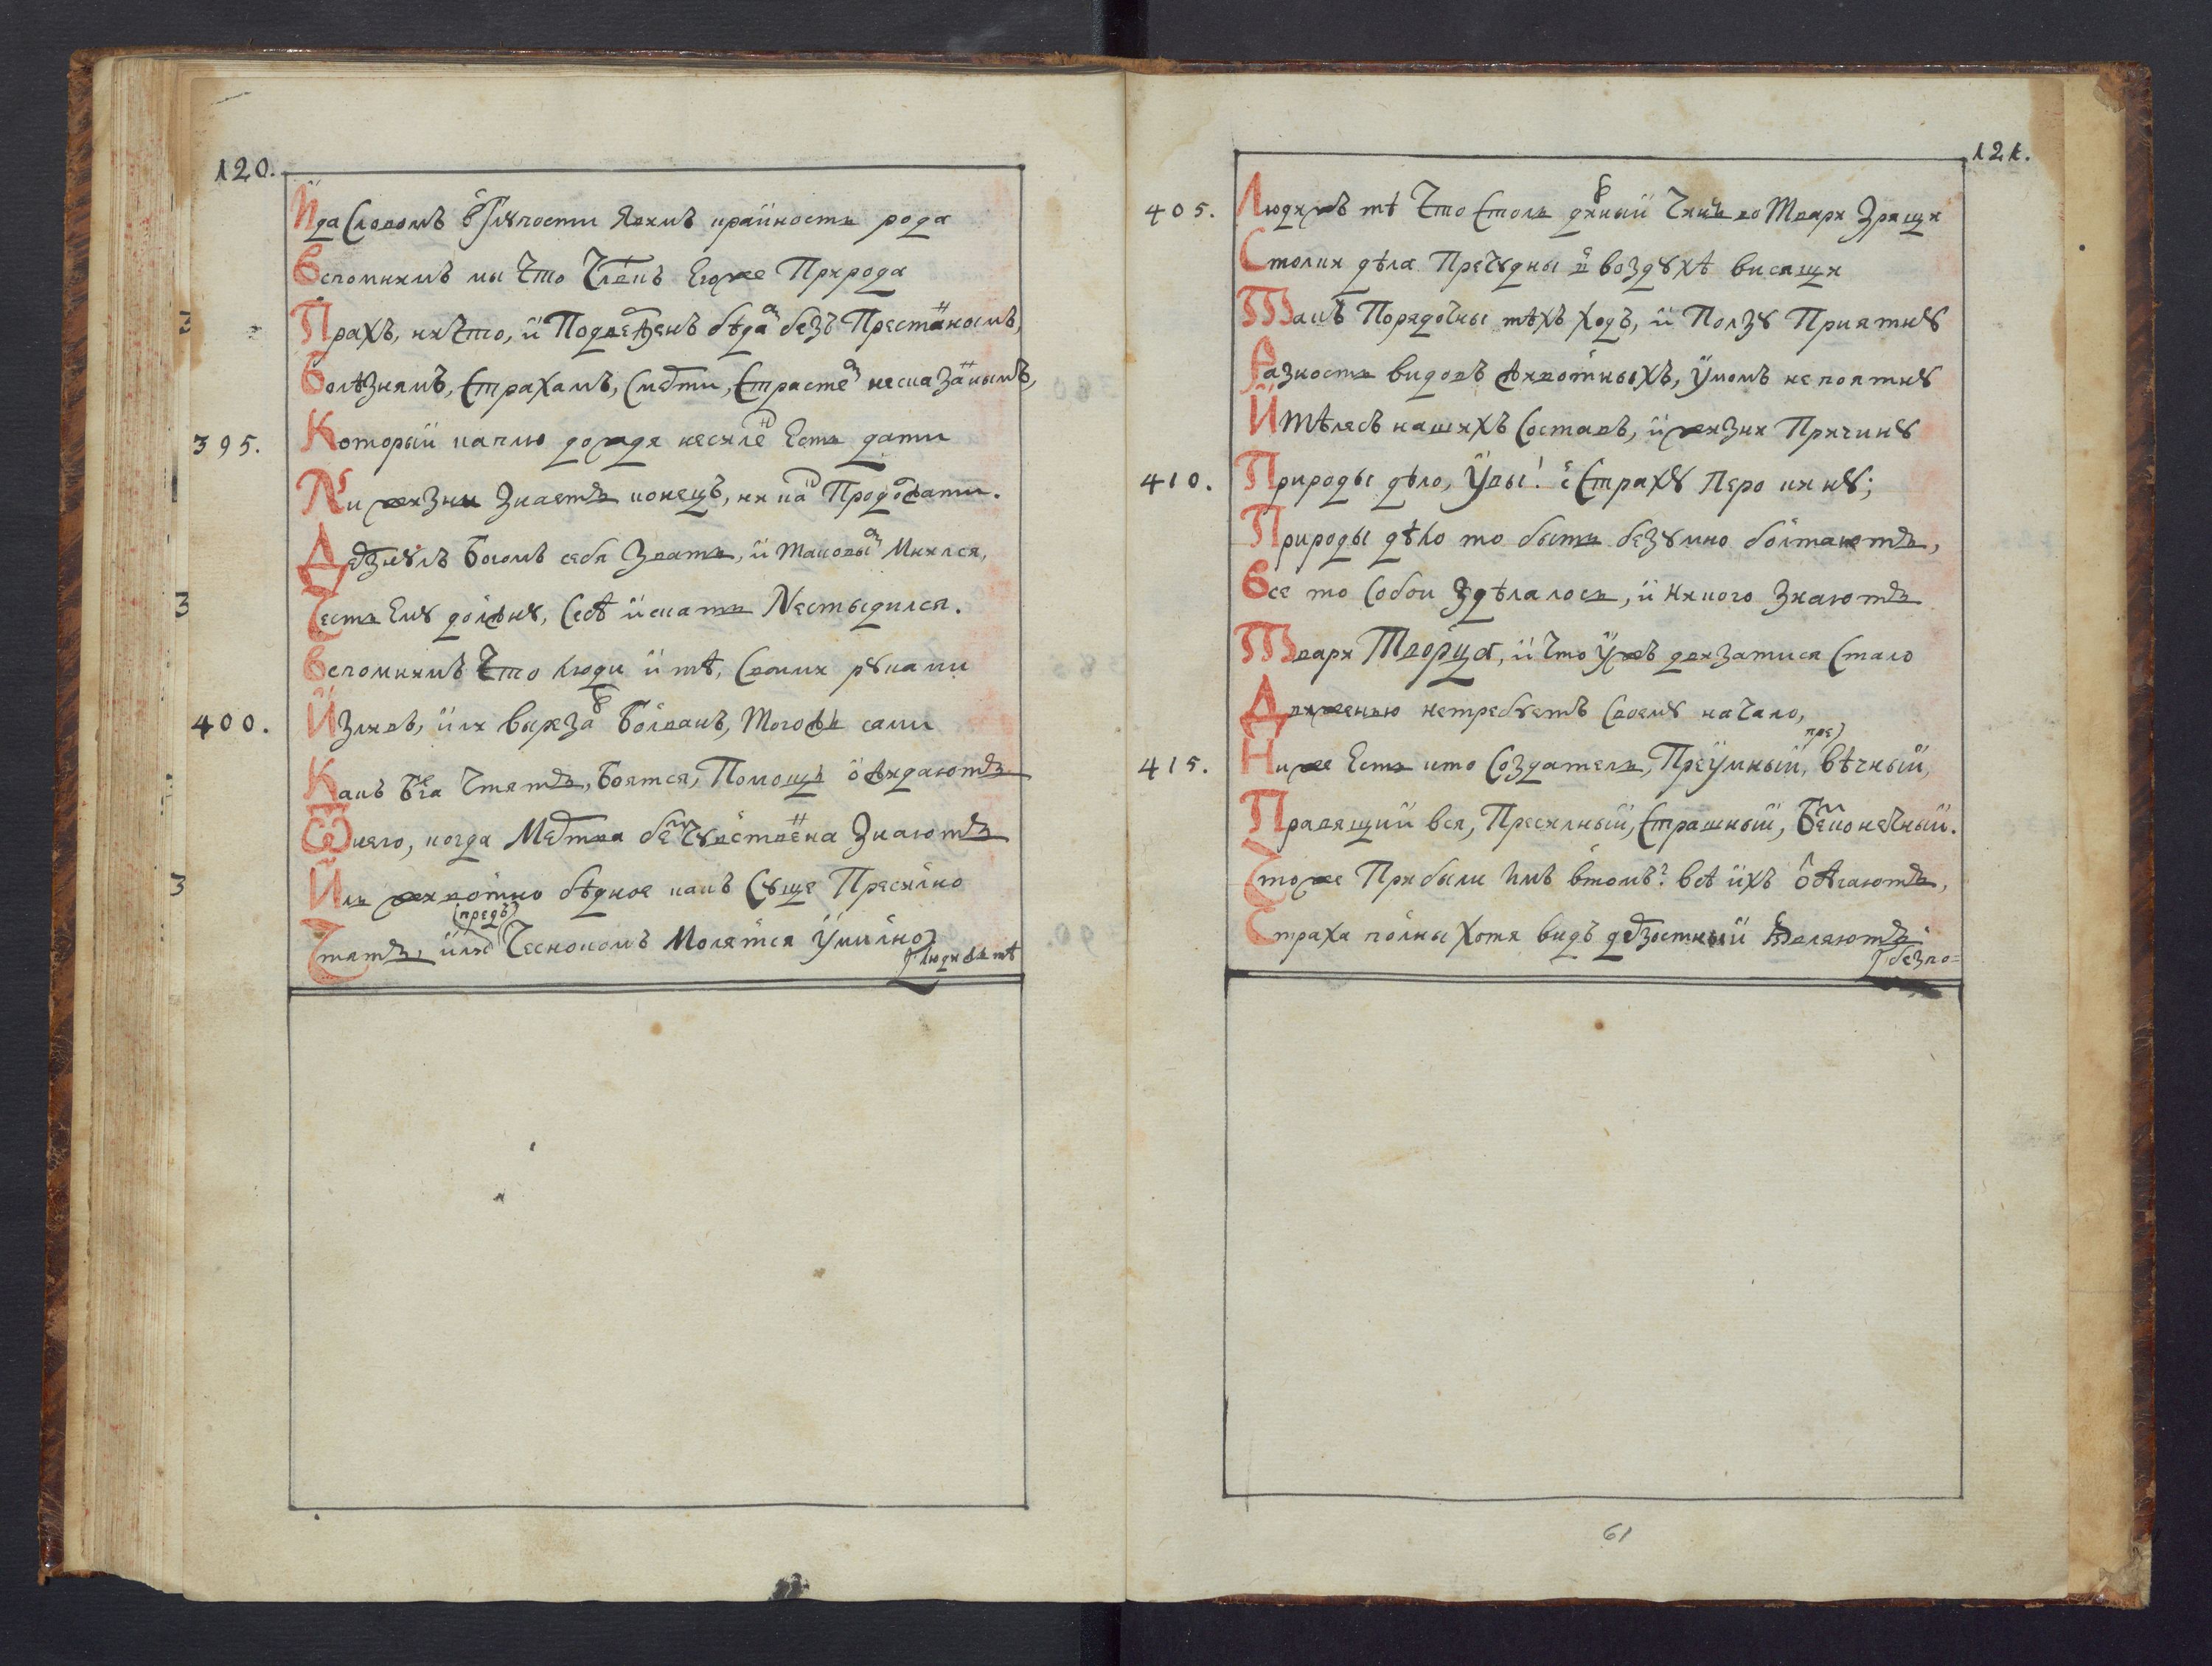 120.
Йда Словомъ в Глупости Явимъ крайность рода
Вспомнимъ мы Что Члвкъ Егоже Природа
Прахъ, ничто, и Подверженъ бѣдамъ безъ Престанномъ,
Болѣзнямъ, Страхамъ, Смерти, Страстемъ несказаннымъ,
395. Который каплю дождя несиленъ Есть дати
Ни жизни Знаетъ конецъ, ни какъ Продолжати.
Дерзнулъ Богомъ себя Звать, и таковымъ Мнился,
Честь Ему должну, Себѣ искать Нестыдился.
Вспомнимъ Что люди и тѣ, Своими руками
400. Изливъ, или вырезавъ Болванъ, Тогожъ сами
Какъ Бга Чтятъ, Боятся, Помощь ожидаютъ
Ѿнего, когда Мертва безчувственна Знаютъ
Иль животно бѣдное какъ Суще Пресилно
(предъ)
Чтятъ, иль Чеснокомъ Молятся Умилно
Людижъ тѣ
121.
405. Людижъ тѣ Что Столь дивный Чинъ во Твари Зрящи
Столки дѣла Пречудны в воздухѣ висящи
Такъ Порядочны тѣхъ ходъ, и Ползу Приятну
Разность видовъ животныхъ, Умомъ непоятну
И тѣлесъ нашихъ Составъ, и жизни Причину
410. Природы дѣло, Увы! в Страху Перо кину;
Природы дѣло то быть безумно болтаютъ,
Все то Собои Здѣлалось, и Никого Знаютъ
Твари Творца, и Что Ужъ двизатися Стало
Движенью нетребуетъ Своему начало,
пре)
415. Ниже Есть кто Создатель, Преумный, вѣчный,
Правящий вся, Пресилный, Страшный, Безконечный.
Чтоже Прибыли Имъ втомъ? всѣ ихъ обѣгаютъ,
Страха полны хотя видъ дерзостный Являютъ
безпо=
61